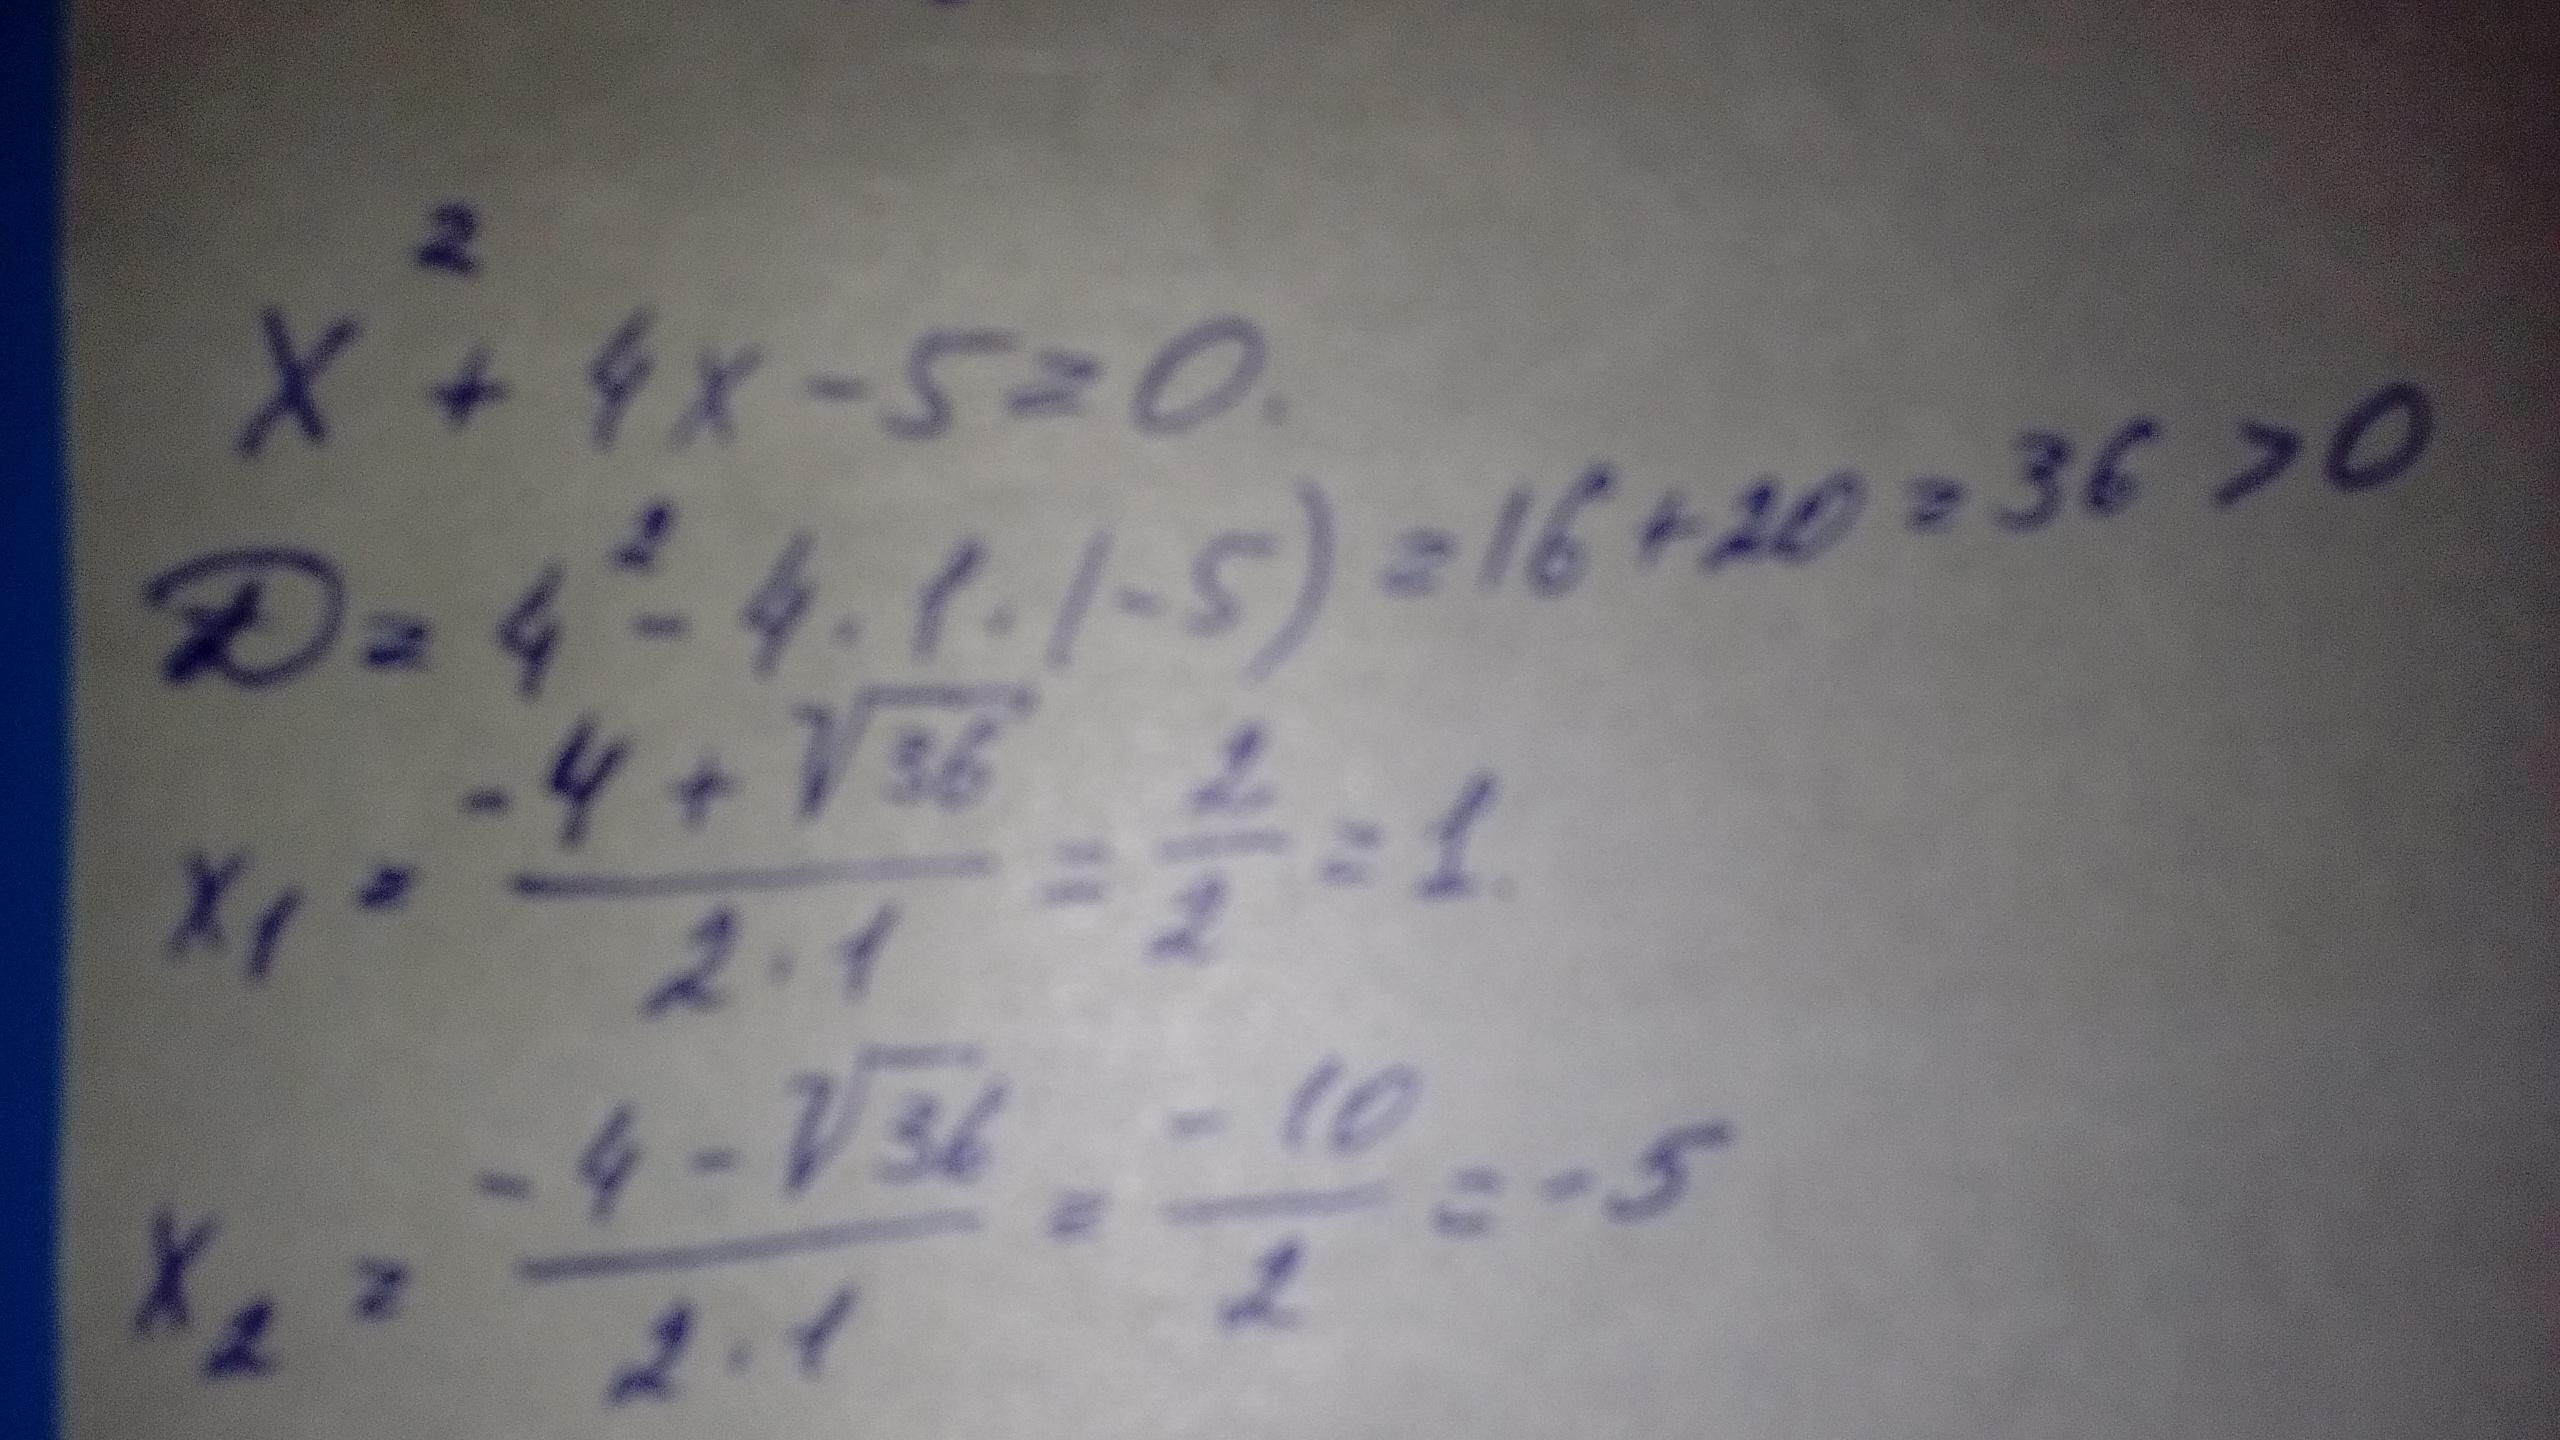 x² + 4x - 5 = 0.
D = 4² - 4 · 1 · (-5) = 16 + 20 = 36 > 0
x₁ = (-4 + √36)/(2 · 1) = 2/2 = 1.
x₂ = (-4 - √36)/(2 · 1) = -10/2 = -5